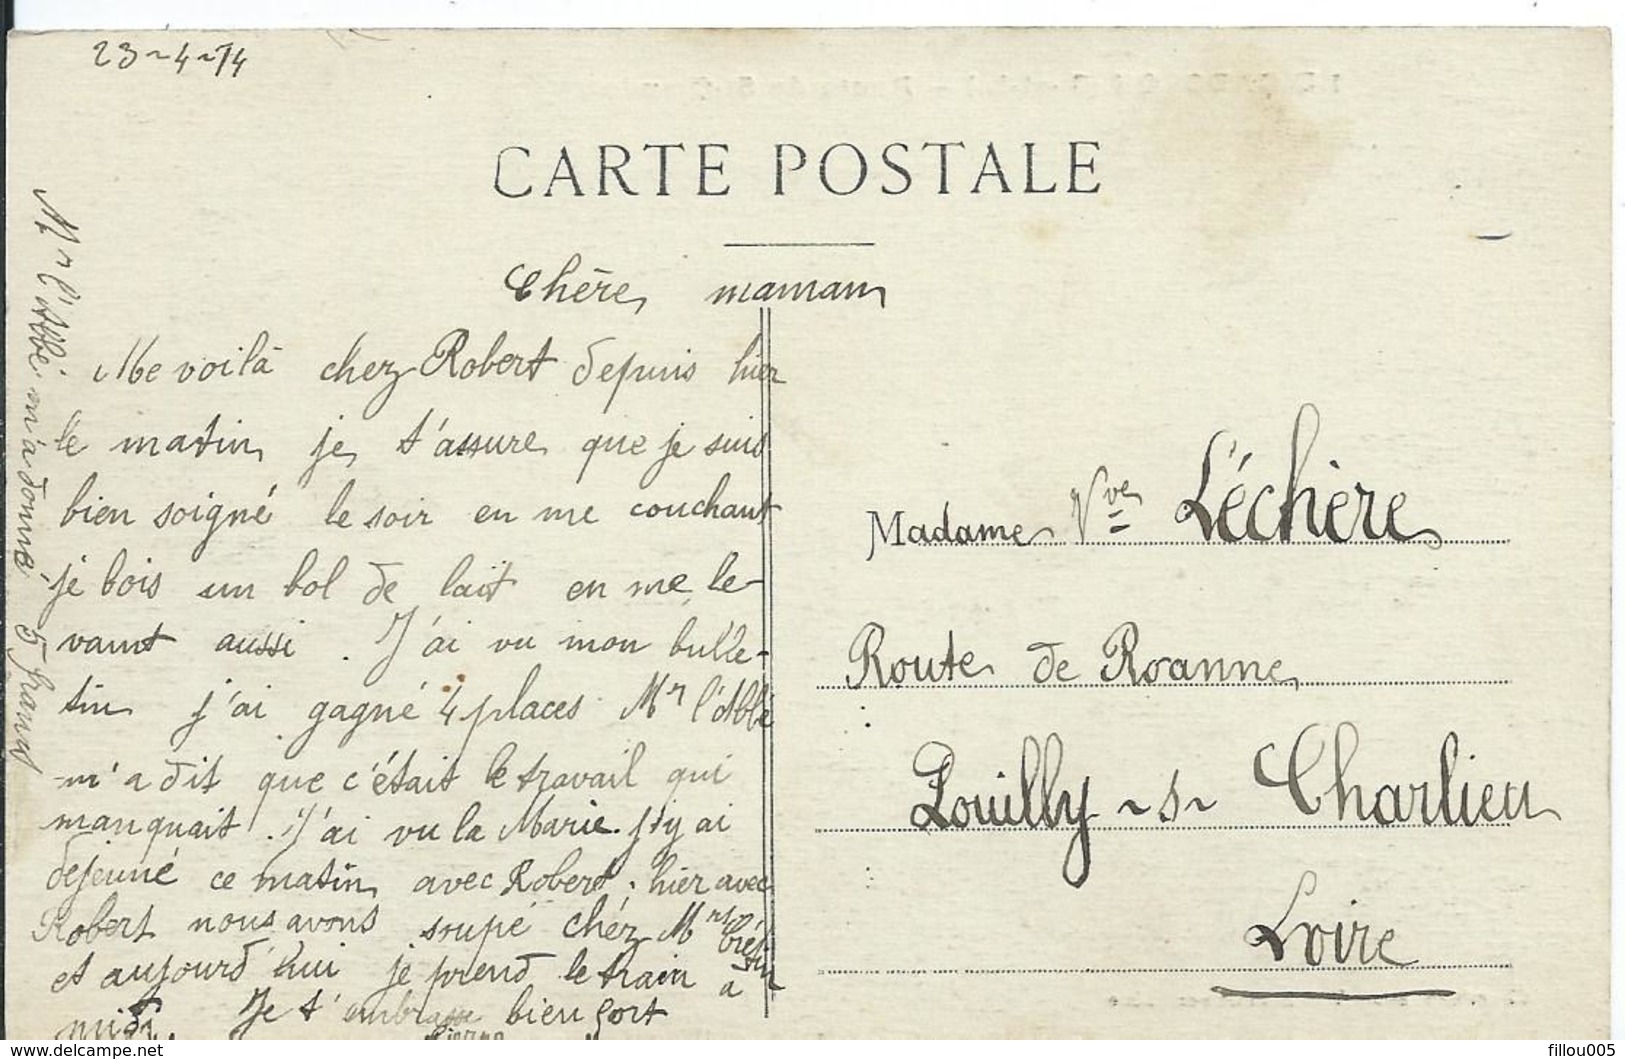 23-4-14
CARTE POSTALE
Chère maman
Me voilà chez Robert depuis hier
le matin je t'assure que je suis
bien soigné le soir en me couchant
je bois un bol de lait en me le-
vant aussi. J'ai vu mon bulle-
tin j'ai gagné 4 places Mr l'Abbé
m'a dit que c'était le travail qui
manquait. J'ai vu la Marie. j'y ai
dejeuné ce matin avec Robert. hier avec
Robert nous avons soupé chéz Mrs
et aujourd'hui je prend le train a
midi. Je t'embrasse bien fort
Pierre
Mr l'Abbé m'a donné 5 francs
Madame Vve Léchère
Route de Roanne
Pouilly-s-Charlieu
Loire
fillou005